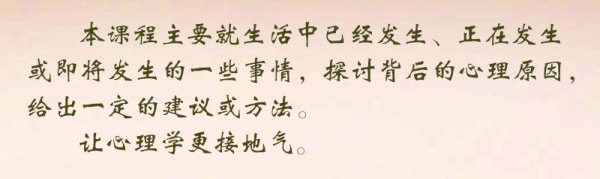 本课程主要就生活中已经发生、正在发生
或即将发生的一些事情，探讨背后的心理原因，
给出一定的建议或方法。
让心理学更接地气。